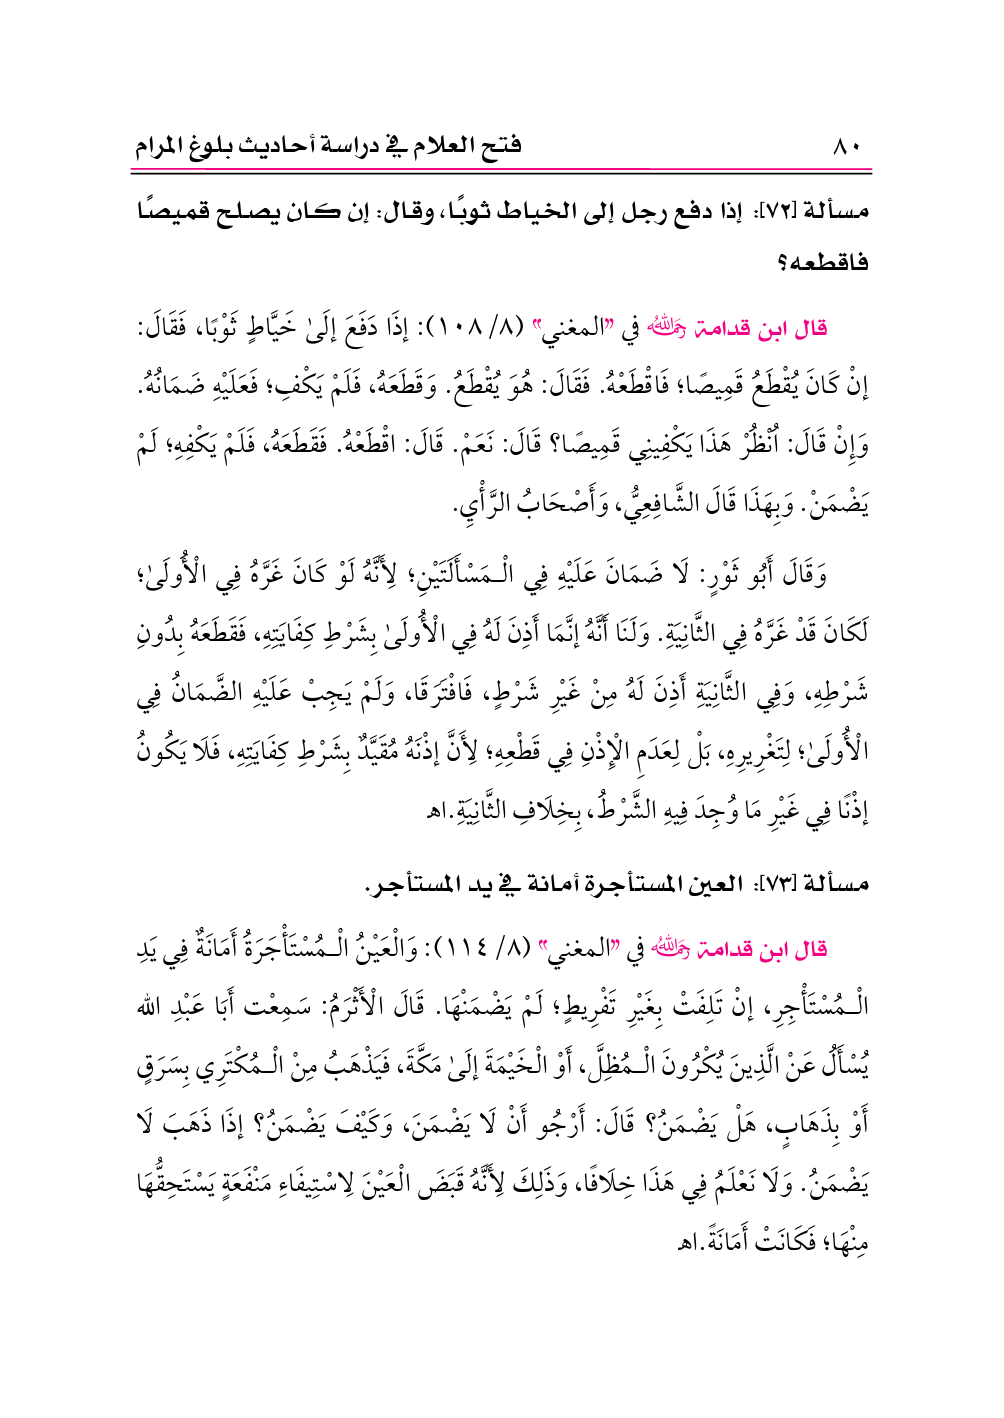 ٨٠ فتح العلام في دراسة أحاديث بلوغ المرام
مسألة [٧٢]: إذا دفع رجل إلى الخياط ثوبًا، وقال: إن كان يصلح قميصًا
فاقطعه؟
قال ابن قدامة رَحِمَهُ اللهُ في "المغني" (٨/ ١٠٨): إذَا دَفَعَ إلَىٰ خَيَّاطٍ ثَوْبًا، فَقَالَ:
إنْ كَانَ يُقْطَعُ قَمِيصًا؛ فَاقْطَعْهُ. فَقَالَ: هُوَ يُقْطَعُ. وَقَطَعَهُ، فَلَمْ يَكْفِ؛ فَعَلَيْهِ ضَمَانُهُ.
وَإِنْ قَالَ: اُنْظُرْ هَذَا يَكْفِينِي قَمِيصًا؟ قَالَ: نَعَمْ. قَالَ: اقْطَعْهُ. فَقَطَعَهُ، فَلَمْ يَكْفِهِ؛ لَمْ
يَضْمَنْ. وَبِهَذَا قَالَ الشَّافِعِيُّ، وَأَصْحَابُ الرَّأْيِ.
وَقَالَ أَبُو ثَوْرٍ: لَا ضَمَانَ عَلَيْهِ فِي الْـمَسْأَلَتَيْنِ؛ لِأَنَّهُ لَوْ كَانَ غَرَّهُ فِي الْأُولَىٰ؛
لَكَانَ قَدْ غَرَّهُ فِي الثَّانِيَةِ. وَلَنَا أَنَّهُ إنَّمَا أَذِنَ لَهُ فِي الْأُولَىٰ بِشَرْطِ كِفَايَتِهِ، فَقَطَعَهُ بِدُونِ
شَرْطِهِ، وَفِي الثَّانِيَةِ أَذِنَ لَهُ مِنْ غَيْرِ شَرْطٍ، فَافْتَرَقَا، وَلَمْ يَجِبْ عَلَيْهِ الضَّمَانُ فِي
الْأُولَىٰ؛ لِتَغْرِيرِهِ، بَلْ لِعَدَمِ الْإِذْنِ فِي قَطْعِهِ؛ لِأَنَّ إذْنَهُ مُقَيَّدٌ بِشَرْطِ كِفَايَتِهِ، فَلَا يَكُونُ
إذْنًا فِي غَيْرِ مَا وُجِدَ فِيهِ الشَّرْطُ، بِخِلَافِ الثَّانِيَةِ.اه
مسألة [٧٣]: العين المستأجرة أمانة في يد المستأجر.
قال ابن قدامة رَحِمَهُ اللهُ في "المغني" (٨/ ١١٤): وَالْعَيْنُ الْـمُسْتَأْجَرَةُ أَمَانَةٌ فِي يَدِ
الْـمُسْتَأْجِرِ، إنْ تَلِفَتْ بِغَيْرِ تَفْرِيطٍ؛ لَمْ يَضْمَنْهَا. قَالَ الْأَثْرَمُ: سَمِعْت أَبَا عَبْدِ الله
يُسْأَلُ عَنْ الَّذِينَ يُكْرُونَ الْـمُظِلَّ، أَوْ الْخَيْمَةَ إلَىٰ مَكَّةَ، فَيَذْهَبُ مِنْ الْـمُكْتَرِي بِسَرَقٍ
أَوْ بِذَهَابٍ، هَلْ يَضْمَنُ؟ قَالَ: أَرْجُو أَنْ لَا يَضْمَنَ، وَكَيْفَ يَضْمَنُ؟ إذَا ذَهَبَ لَا
يَضْمَنُ. وَلَا نَعْلَمُ فِي هَذَا خِلَافًا، وَذَلِكَ لِأَنَّهُ قَبَضَ الْعَيْنَ لِاسْتِيفَاءِ مَنْفَعَةٍ يَسْتَحِقُّهَا
مِنْهَا؛ فَكَانَتْ أَمَانَةً.اه